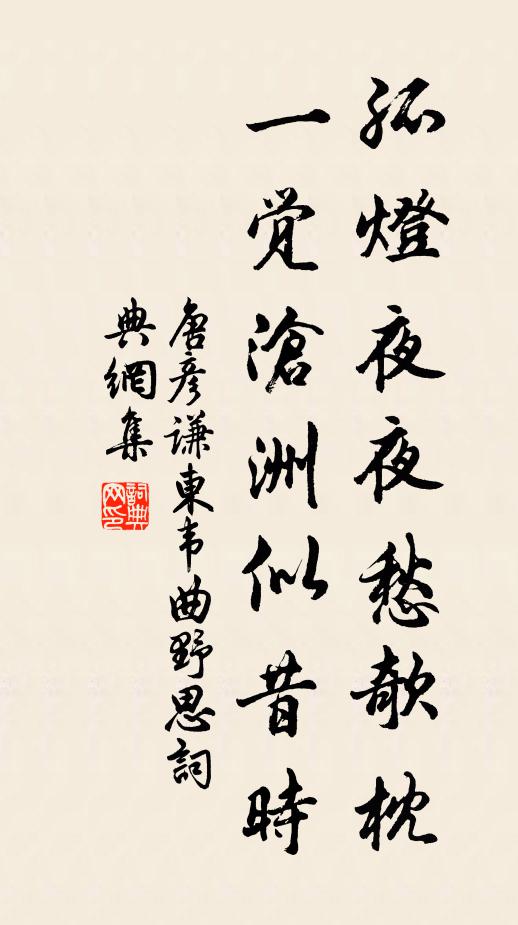 孤燈夜夜愁欹枕
一觉滄洲似昔時
唐彦謙東韦曲野思詞
典網集
詞典
网印